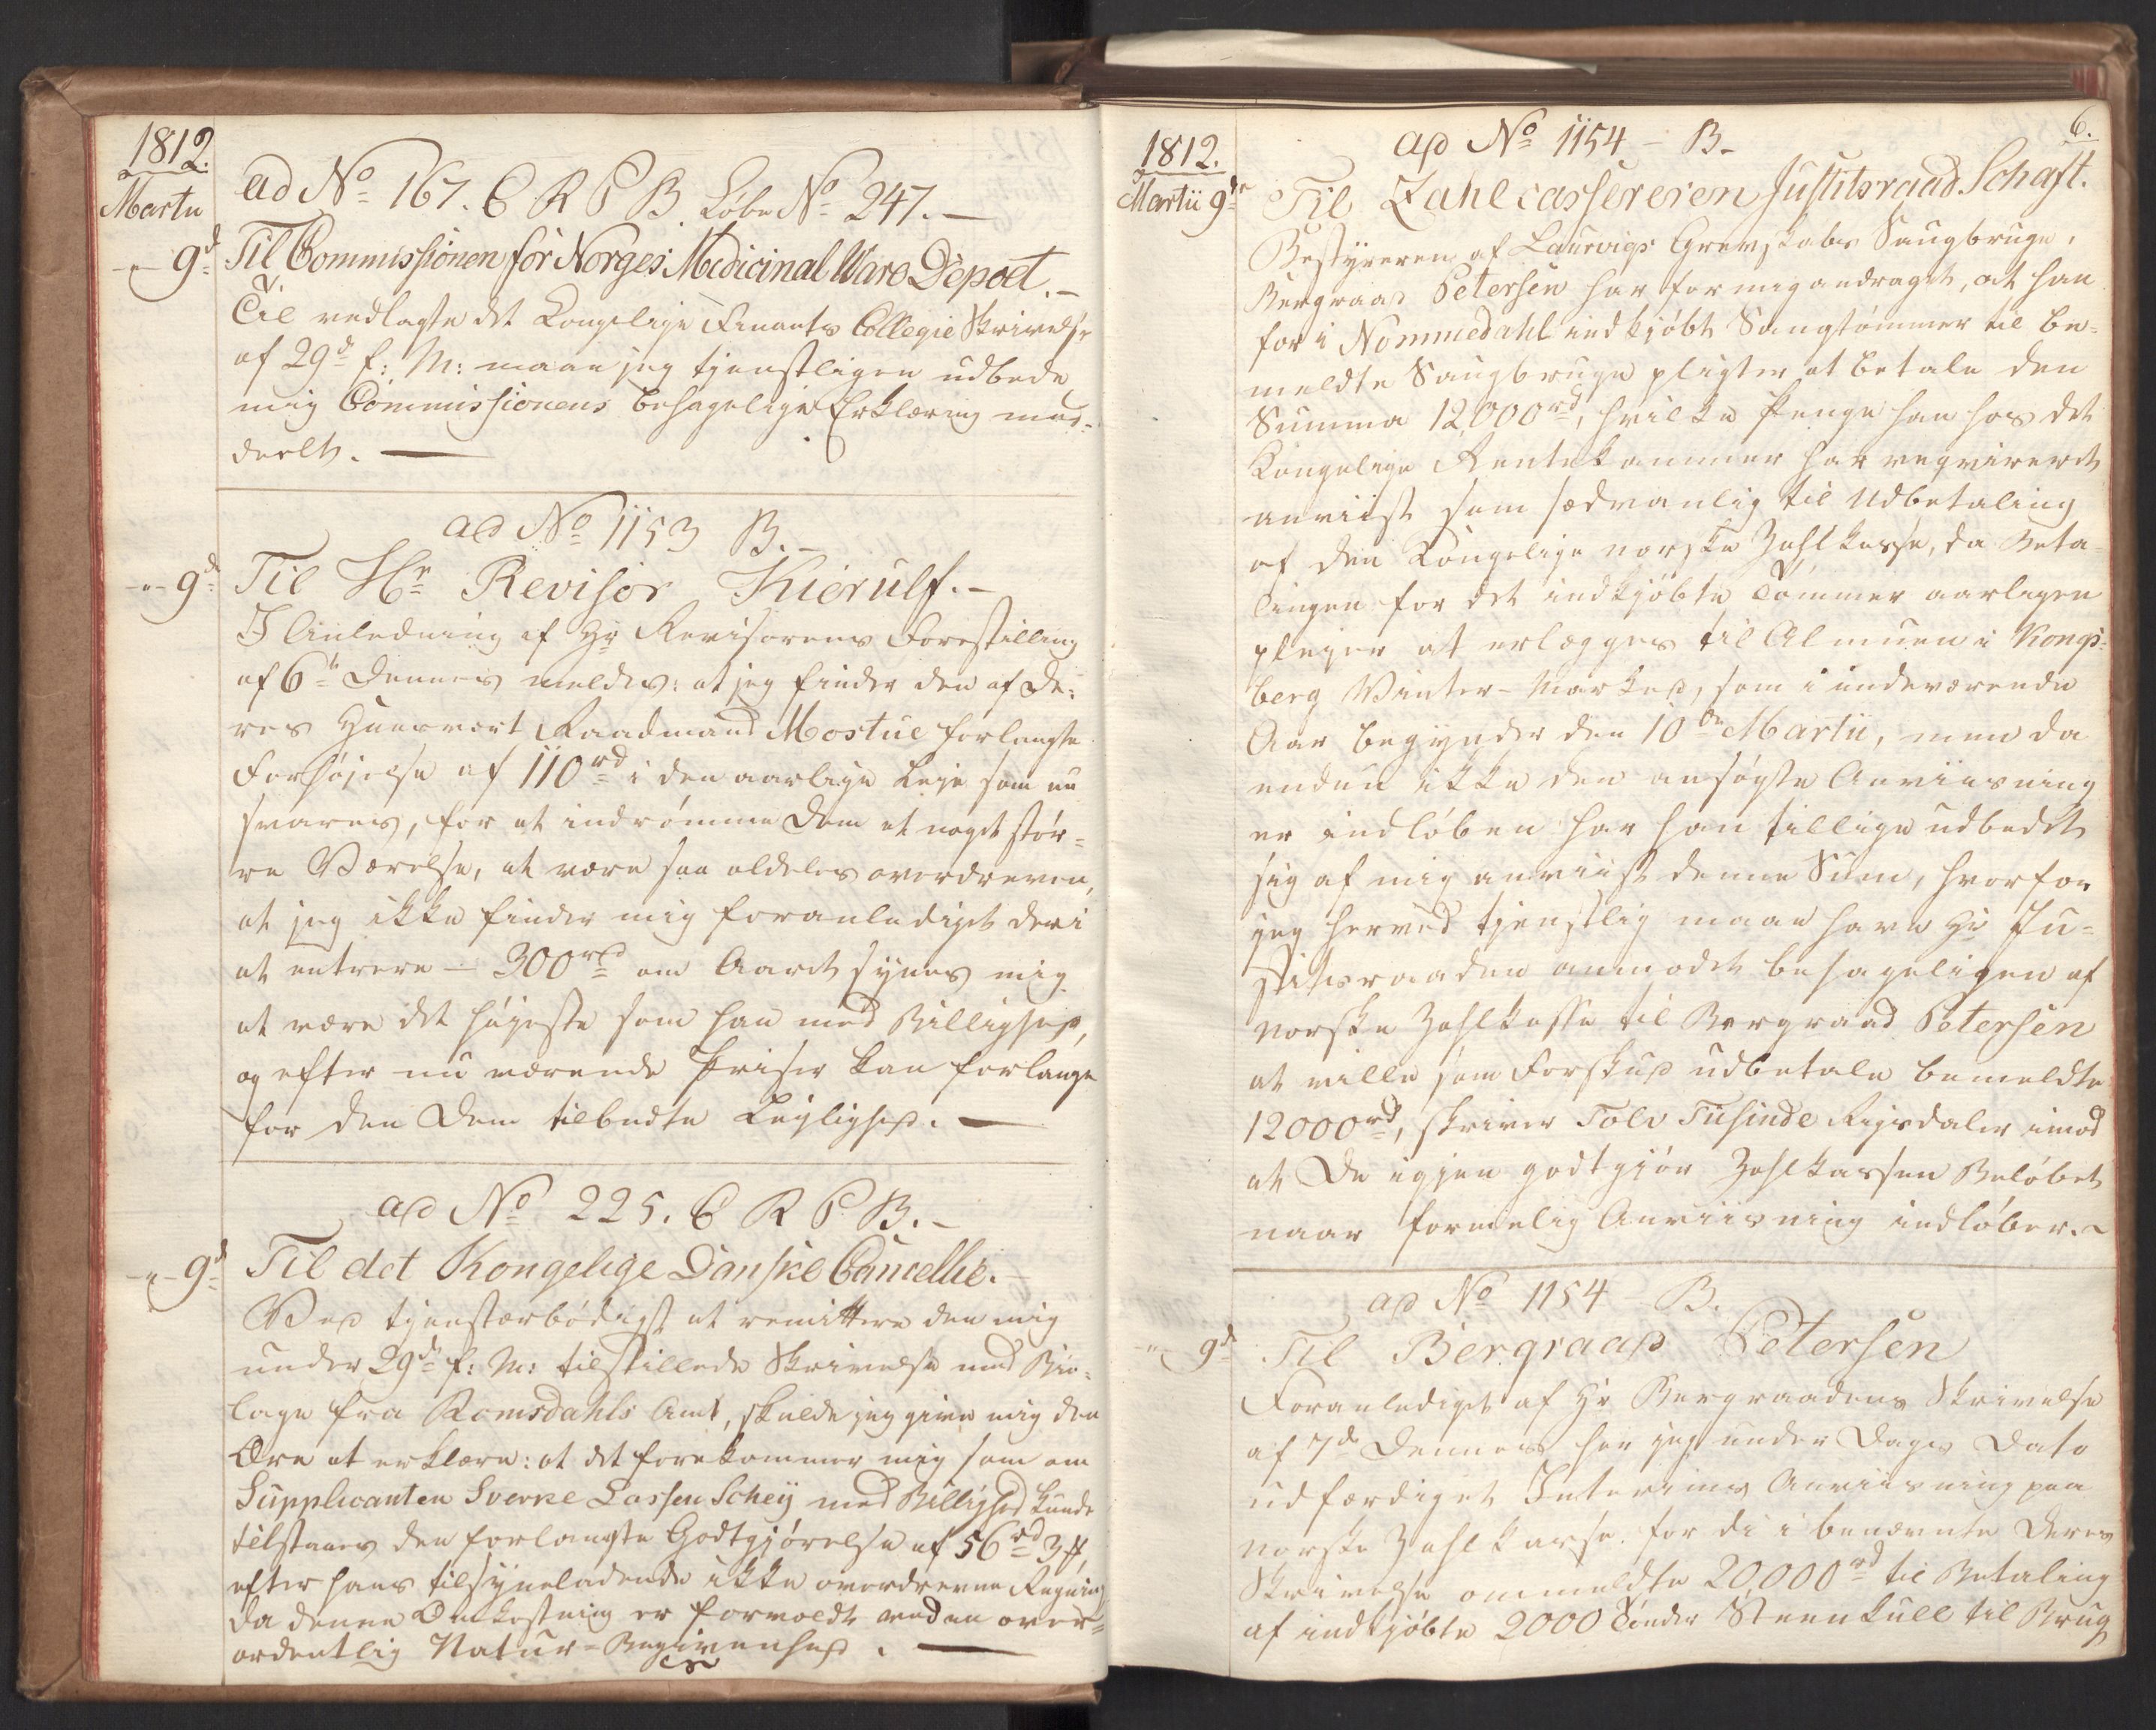 1812.
Martii
ad No 167. C R P B. Løbe No 247. —
- " - 9d Til Commissionen for Norges Medicinal Ware Depoet. —
Til vedlagte det Kongelige Finants Collegie Skrivelse
af 29d f: M: maae jeg tjenstligen udbede
mig Commissionens behagelige Erklæring med-
deelt. —
ad No 1153 B. —
- " - 9d Til Hr Revisor Kierulf. —
I Anledning af Hr Revisorens Forestilling
af 6te dennes meldes: at jeg finder den af De-
res Huusvært Raadmand Mostue forlangte
Forhøjelse af 110 rd i den aarlige Leje som nu
svares, for at indrømme Dem et noget stør-
re Værelse, at være saa aldeles overdreven,
at jeg ikke finder mig foranlediget deri
at entrere — 300 rd om Aaret synes mig
at være det højeste som han med Billighed,
og efter nu værende Priser kan forlange
for den Dem tilbudte Lejlighed. —
ad No 225. C R P B. —
- " - 9d Til det Kongelige Danske Cancellie.
Ved tjenstærbødigst at remittere den mig
under 29d f: M: tilstillede Skrivelse med Bie-
lage fra Romsdahls Amt, skulde jeg give mig den
Ære at erklære: at det forekommer mig som om
Supplicanten Sverke Lassen Scheij med Billighed kunde
tilstaaes den forlangte Godtgjørelse af 56 rd 3 ,
efter hans tilsyneladende ikke overdrevne Regning
da denne Omkostning er forvoldt ved en over-
ordentlig Natur-Begivenhed. —
6.
1812.
Martii 9de
ad No 1154 - B.
Til Zahlcassereren Justitsraad Schaft.
Bestyreren af Laurvigs Grevskabs Saugbruge,
Bergraad Petersen har for mig andraget, at han
for i Nommedahl indkjøbt Saugtømmer til be-
meldte Saugbruge pligter at betale den
Summa 12,000 rd, hvilke Penge han hos det
Kongelige Rentekammer har reqvireret
anviist som sædvanlig til Udbetaling
af den Kongelige norske Zahlkasse, da Beta-
lingen for det indkjøbte Tømmer aarligen
plejer at erlægges til Almuen i Kongs-
berg Winter-Marked, som i indeværende
Aar begynder den 10de Martii, men da
endnu ikke den ansøgte Anviisning
er indløben har han tillige udbedet
sig af mig anviist denne Sum, hvorfor
jeg herved tjenstlig maae have Hr Ju-
stitsraaden anmodet behageligen af
norske Zahlkasse til Bergraad Petersen
at ville som Forskud udbetale bemeldte
12000 rd, skriver Tolv Tusinde Rigsdaler imod
at De igjen godtgjør Zahlkassen Beløbet
naar formelig Anviisning indløber. —
ad No 1154 - B.
- " - 9d Til Bergraad Petersen
Foranlediget af Hr Bergraadens Skrivelse
af 7de dennes har jeg under Dags Dato
udfærdiget Interims Anviisning paa
norske Zahlkasse for de i benævnte Deres
Skrivelse ommeldte 20,000 rd til Betaling
af indkjøbte 2000 Tønder Steenkull til Brug